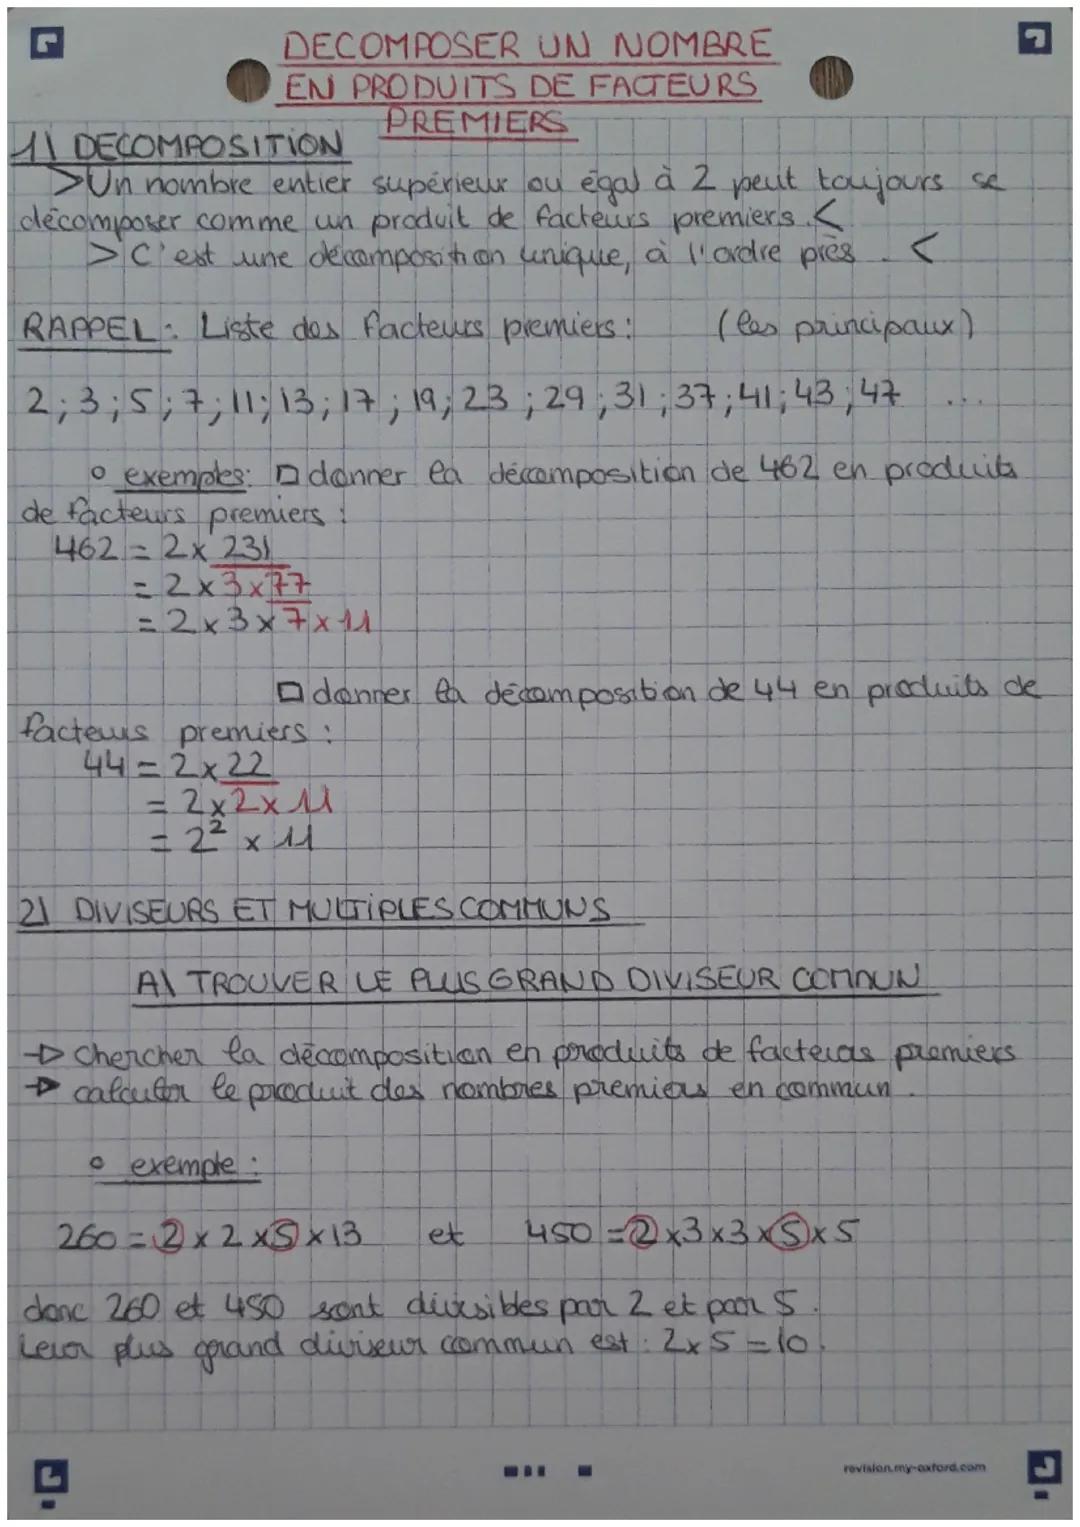 DECOMPOSER UN NOMBRE
EN PRODUITS DE FACTEURS
PREMIERS
1\ DECOMPOSITION
>Un nombre entier supérieur ou égal à 2 peut toujours se
décomposer comme un produit de facteurs premiers.<
>C'est une décomposition unique, à l'ordre près. <
RAPPEL: Liste des facteurs premiers: (les principaux)
2;3;5;7;11;13;17;19;23;29;31;37;41;43;47 ...
exemples: donner la décomposition de 462 en produits
de facteurs premiers :
462 = 2x 231
= 2 x 3 x 77
= 2 x 3 x 7 x 11
donner la décomposition de 44 en produits de
facteurs premiers :
44 = 2x 22
= 2x 2x 11
= 2² x 11
2\ DIVISEURS ET MULTIPLES COMMUNS
A\ TROUVER LE PLUS GRAND DIVISEUR COMMUN
→ chercher la décomposition en produits de facteurs premiers
→ calculer le produit des nombres premiers en commun.
exemple :
260 = 2 x 2 x 5 x 13 et 450 = 2 x 3 x 3 x 5 x 5
donc 260 et 450 sont divisibles par 2 et par 5.
Leur plus grand diviseur commun est : 2x 5 = 10.
revision.my-oxford.com